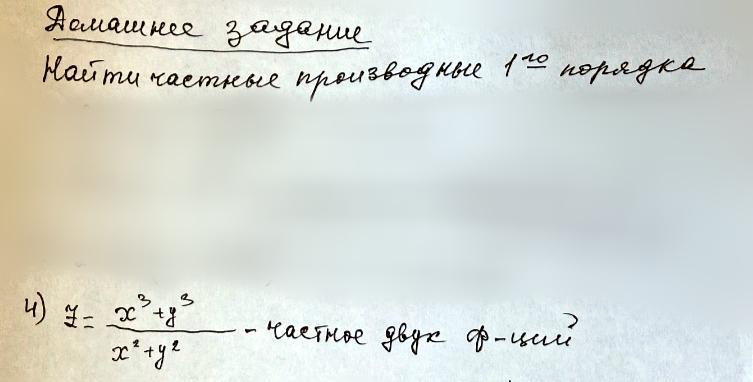 Домашнее задание
Найти частные производные 1го порядка
4) Z = x³+y³ / x²+y² - частное двух ф-ций